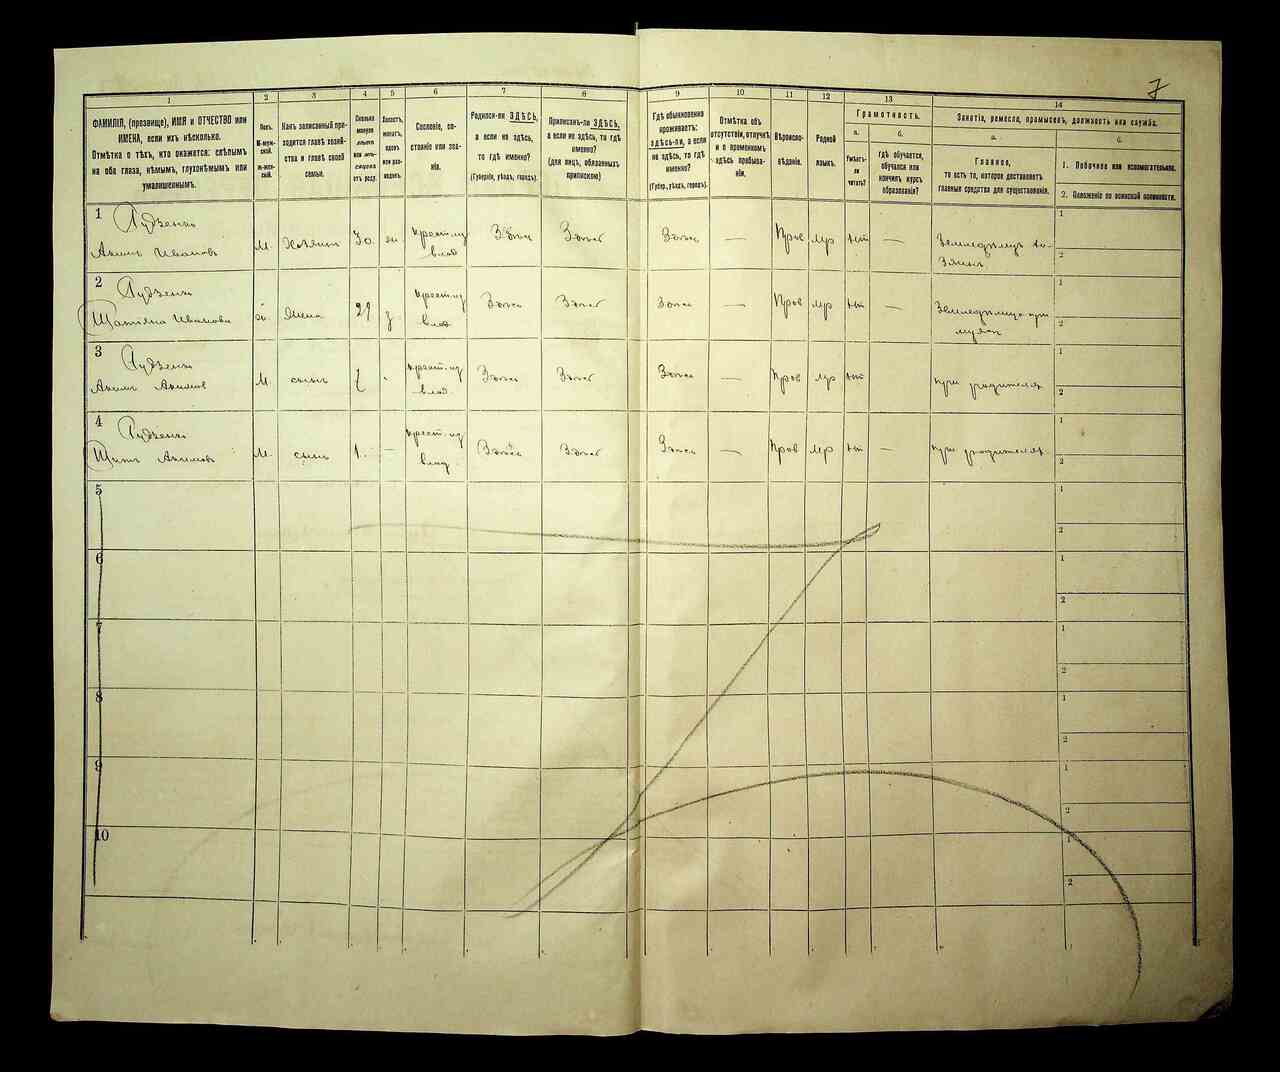 7
1
2
3
4
5
6
7
8
9
10
11
12
13
14
ФАМИЛІЯ, (прозвище), ИМЯ и ОТЧЕСТВО или
ИМЕНА, если ихъ нѣсколько.
Отмѣтка о тѣхъ, кто окажется: слѣпымъ
на оба глаза, нѣмымъ, глухонѣмымъ или
умалишеннымъ.
Полъ.
М-муж-
ской.
ж-жен-
ской.
Какъ записанный при-
ходится главѣ хозяй-
ства и главѣ своей
семьи.
Сколько
минуло
лѣтъ
или мѣ-
сяцевъ
отъ роду.
Холостъ,
женатъ,
вдовъ
или раз-
веденъ.
Сословіе, со-
стояніе или зва-
ніе.
Родился-ли ЗДѢСЬ,
а если не здѣсь,
то гдѣ именно?
(Губернія, уѣздъ, городъ).
Приписанъ-ли ЗДѢСЬ,
а если не здѣсь, то гдѣ
именно?
(для лицъ, обязанныхъ
припискою)
Гдѣ обыкновенно
проживаетъ:
здѣсь-ли, а если
не здѣсь, то гдѣ
именно?
(Губер., уѣздъ, городъ).
Отмѣтка объ
отсутствіи, отлучкѣ
и о временномъ
здѣсь пребыва-
ніи.
Вѣроиспо-
вѣданіе.
Родной
языкъ.
Грамотность.
а.
Умѣетъ-
ли
читать?
б.
Гдѣ обучается,
обучался или
кончилъ курсъ
образованія?
Занятіе, ремесло, промыселъ, должность или служба.
а.
Главное,
то есть то, которое доставляетъ
главныя средства для существованія.
б.
1. Побочное или вспомогательное.
2. Положеніе по воинской повинности.
1
Акимъ Ивановъ
М. Хозяинъ 30. жн. крест. из влад Здѣсь Здѣсь Здѣсь — Прав мр нѣт —
Земледѣлецъ хо-
зяинъ
1
2
2
Татьяна Иванова
ж. Жена 29 з крест. из влад Здѣсь Здѣсь Здѣсь — Прав мр нѣт —
Земледѣлица при
мужѣ
1
2
3
Акимъ Акимов
М. сынъ крест. из влад. Здѣсь Здѣсь Здѣсь — Прав мр нѣт —
при родителяхъ
1
2
4
Титъ Акимовъ
М. сынъ 1. — крест. из влад Здѣсь Здѣсь Здѣсь — Прав мр нѣт —
при родителяхъ
1
2
5
1
2
6
1
2
7
1
2
8
1
2
9
1
2
10
1
2